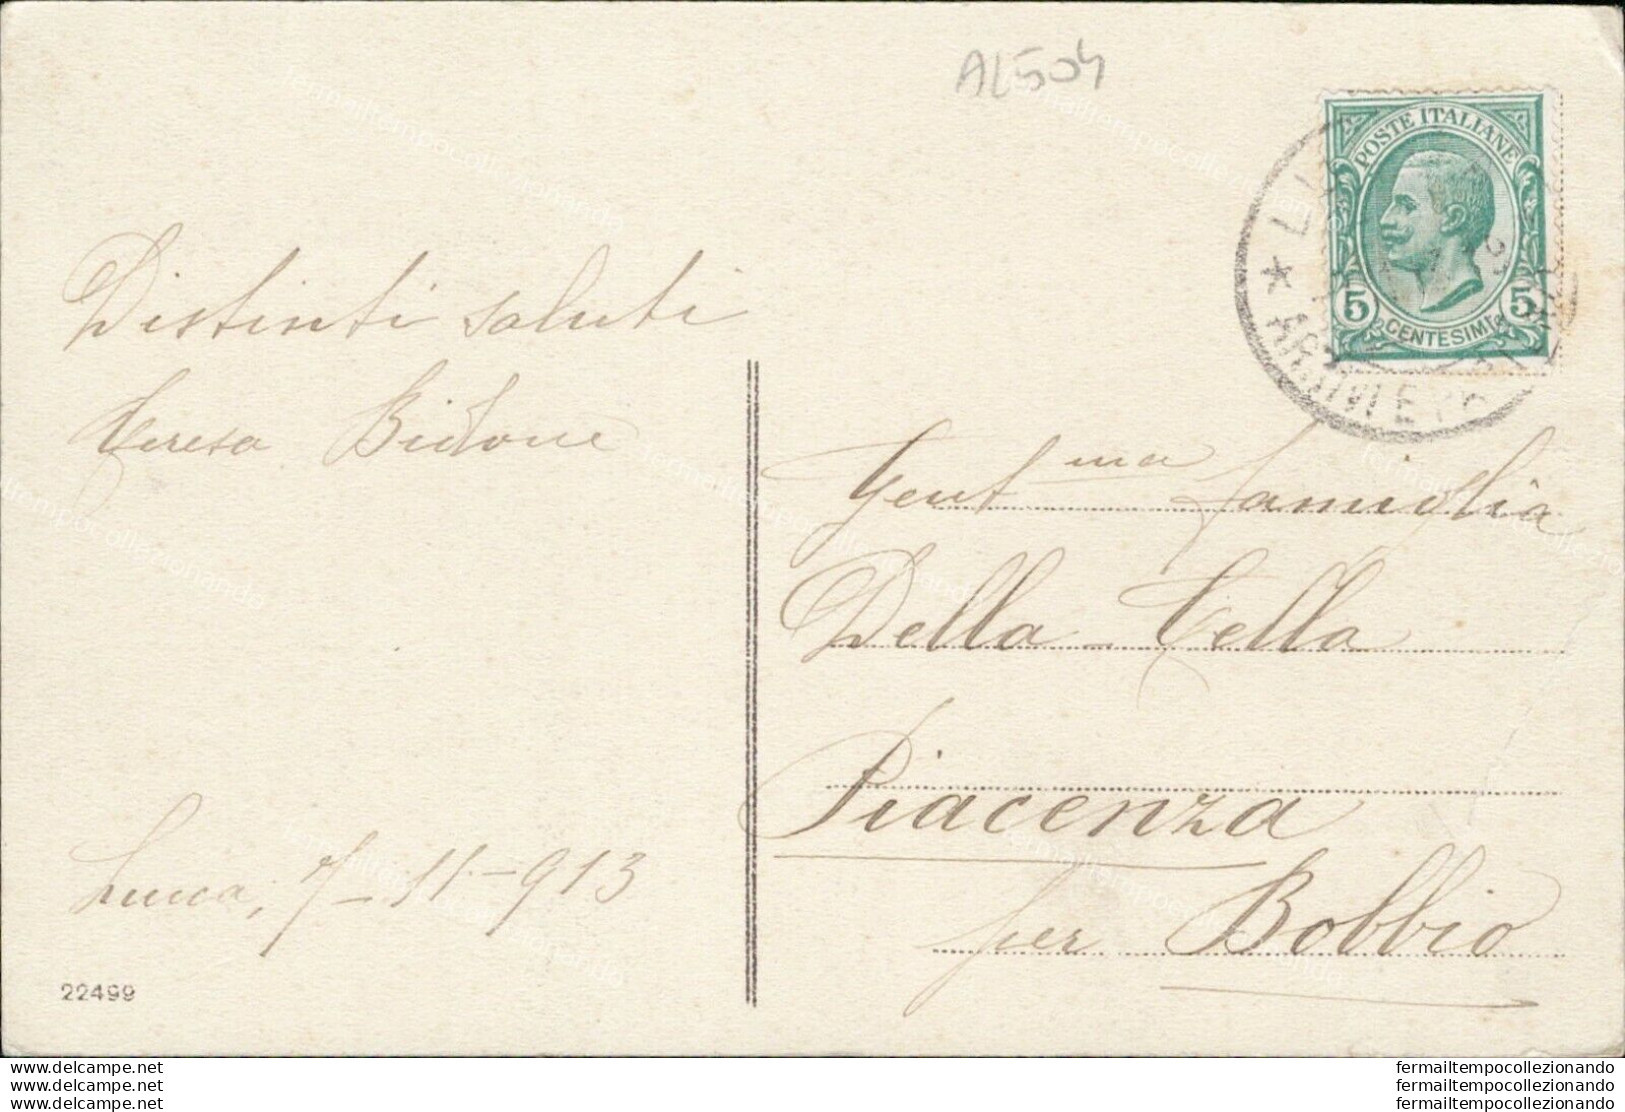 AL504
POSTE ITALIANE
5 CENTESIMI 5
Distinti saluti
Teresa Bidone
Lucca, 7-11-913
22499
Gent.ma famiglia
Della-Cella
Piacenza
per Bobbio
www.delcampe.net
www.delcampe.net
www.delcampe.net
fermailtempocollezionando
fermailtempocollezionando
fermailtempocollezionando